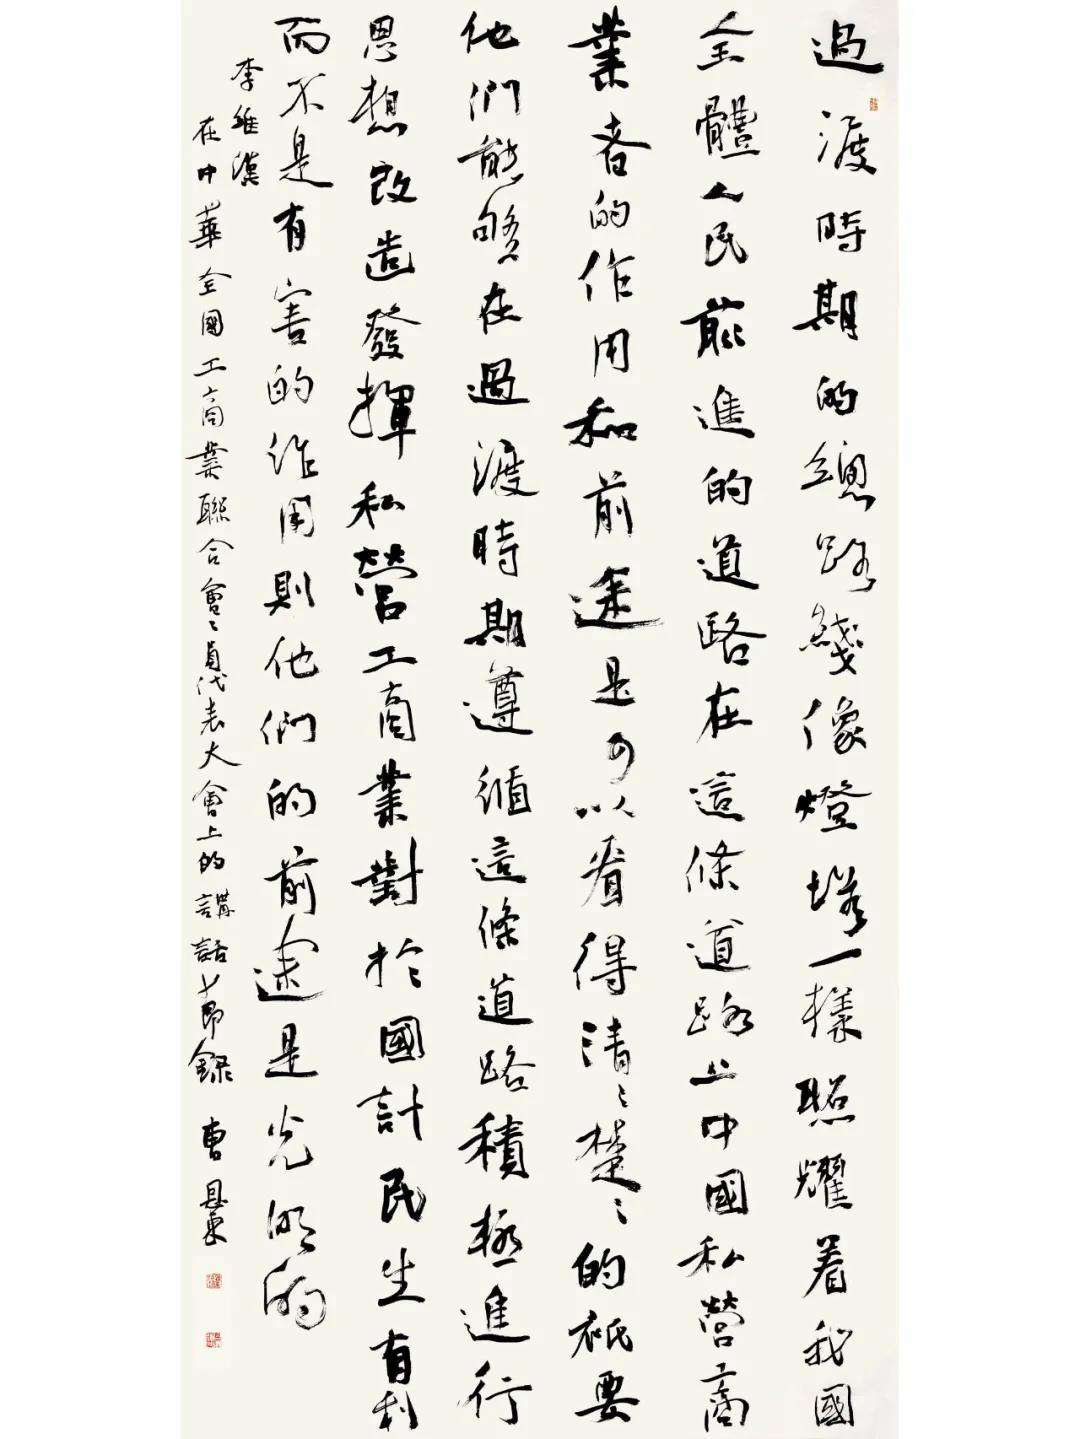 過渡時期的總路綫像燈塔一樣照耀着我國
全體人民前進的道路在這條道路上中國私營商
業者的作用和前途是可以看得清〻楚〻的祇要
他們能够在過渡時期遵循這條道路積極進行
思想改造發揮私營工商業對於國計民生有利
而不是有害的作用則他們的前途是光明的
李維漢
在中華全國工商業聯合會〻員代表大會上的講話節録 曹